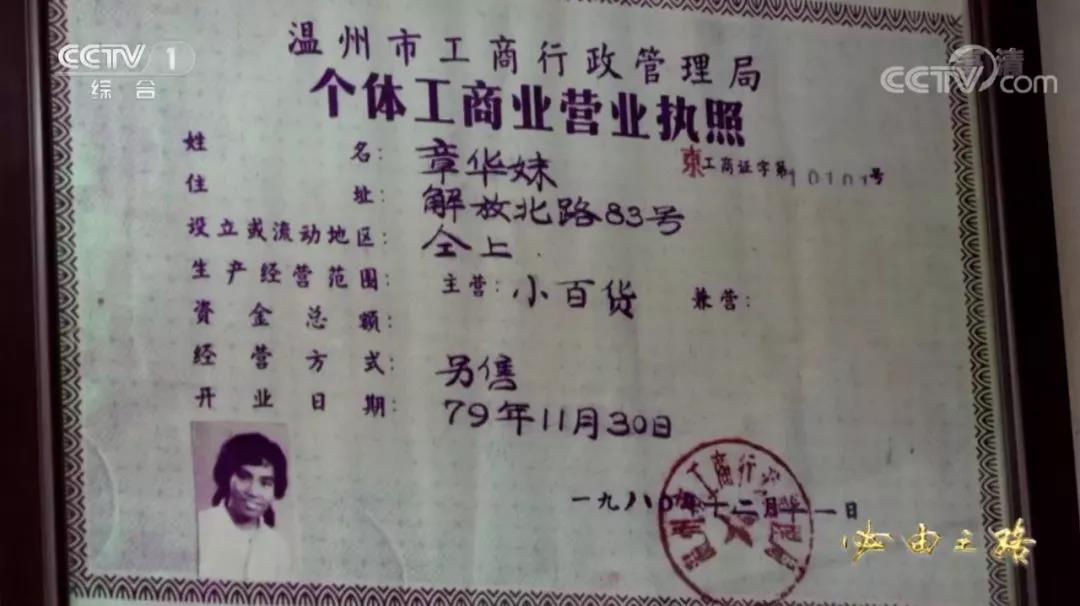 CCTV 1
综合
高清
CCTV.com
温州市工商行政管理局
个体工商业营业执照
姓名：章华妹
東工商证字第10101号
住址：解放北路83号
设立或流动地区：仝上
生产经营范围：主营：小百货 兼营：
资金总额：
经营方式：另售
开业日期：79年11月30日
一九八〇年十二月十一日
必由之路